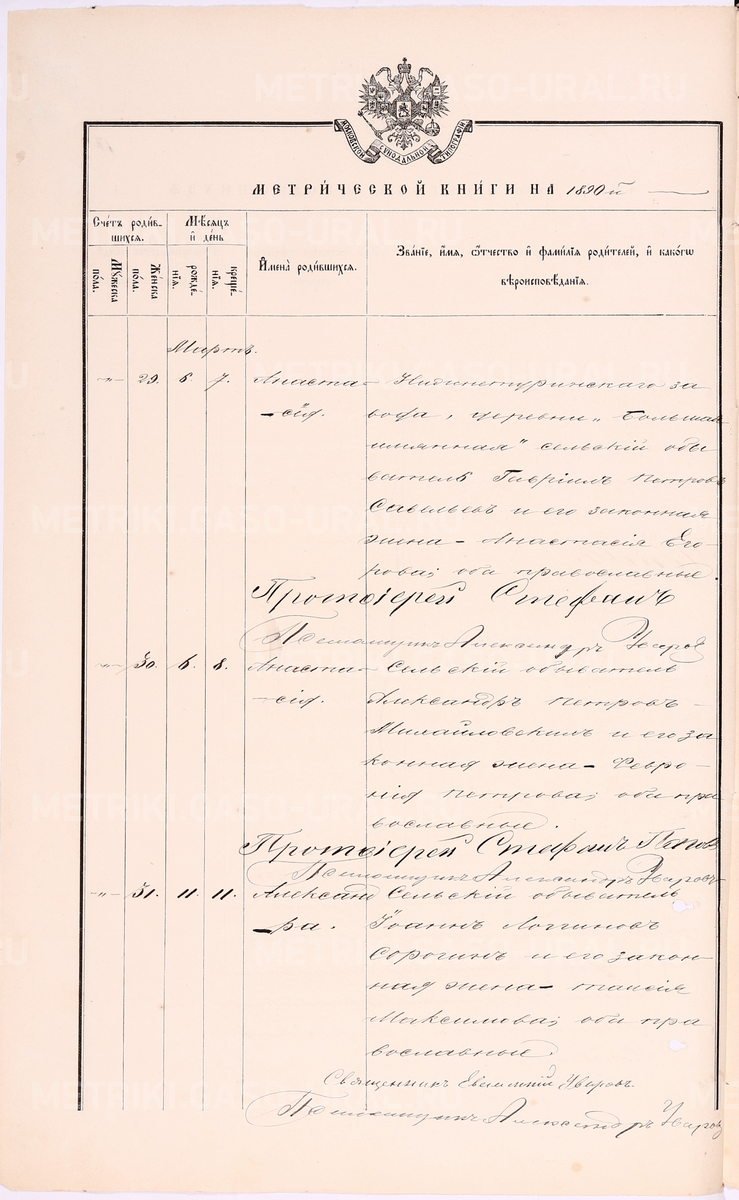 МОСКОВСКОЙ СѴНОДАЛЬНОЙ ТИПОГРАФІИ
МЕТРИЧЕСКОЙ КНИГИ НА 1890 й
Счетъ родив-
шихся.
Мѣсяцъ
и день
Имена родившихся.
Званіе, имя, отчество и фамилія родителей, и какогѡ
вѣроисповѣданія.
Мужеска
пола.
Женска
пола.
рожде-
нія.
креще-
нія.
Мартъ.
-"- 29. 6. 7. Анаста- Нижнетуринскаго за
-сія. вода, деревни „Большая
имянная" сельскій обы
ватель Гавріилъ Петровъ
Савельевъ и его законная
жена - Анастасія Его-
рова; оба православные.
Протоіерей Стефанъ
Псаломщикъ Александръ Уваровъ
-"- 30. 6. 8. Анаста- Сельскій обыватель
-сія. Александръ Петровъ -
Михайловскихъ и его за
конная жена - Февро-
нія Петрова; оба пра
вославные.
Протоіерей Стефанъ Поповъ
Псаломщикъ Александръ Уваровъ
-"- 31. 11. 11. Александ Сельскій обыватель
-ра. Іоаннъ Логгиновъ
Сорогинъ и его закон-
ная жена - Таисія
Максимова; оба пра
вославные.
Священникъ Евѳимій Уваровъ.
Псаломщикъ Александръ Уваровъ
METRIKI.GASO-URAL.RU